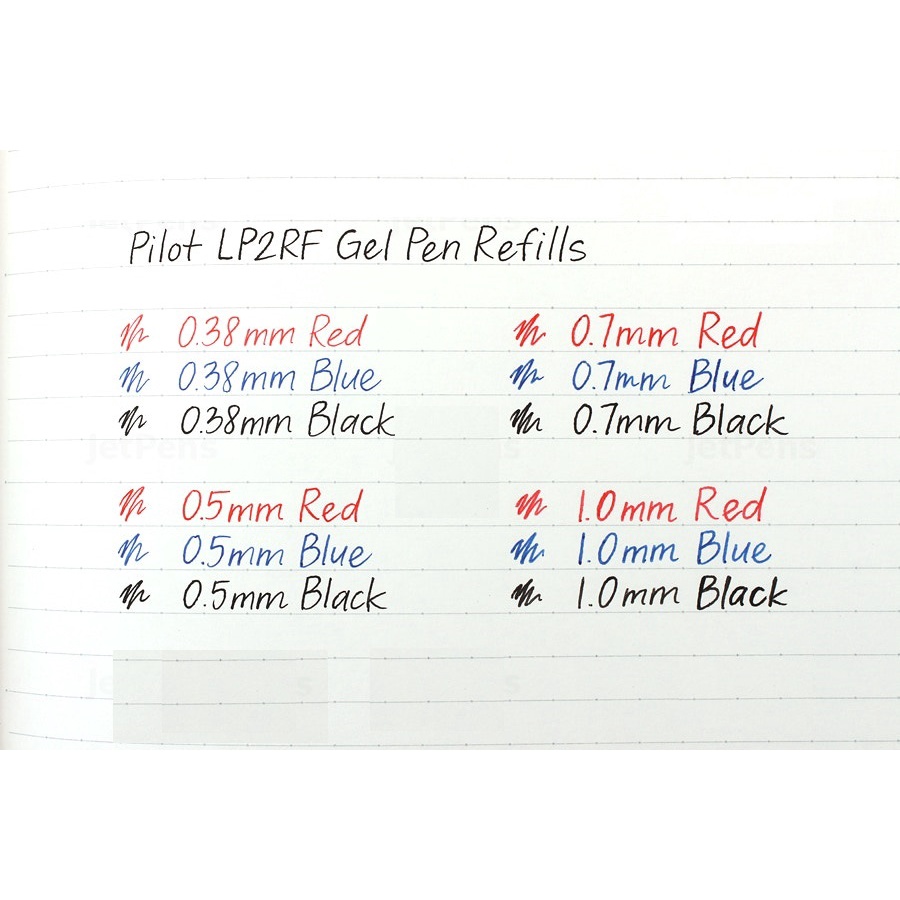 Pilot LP2RF Gel Pen Refills
0.38mm Red
0.38mm Blue
0.38mm Black
0.7mm Red
0.7mm Blue
0.7mm Black
0.5mm Red
0.5mm Blue
0.5mm Black
1.0mm Red
1.0mm Blue
1.0mm Black
JetPens
JetPens